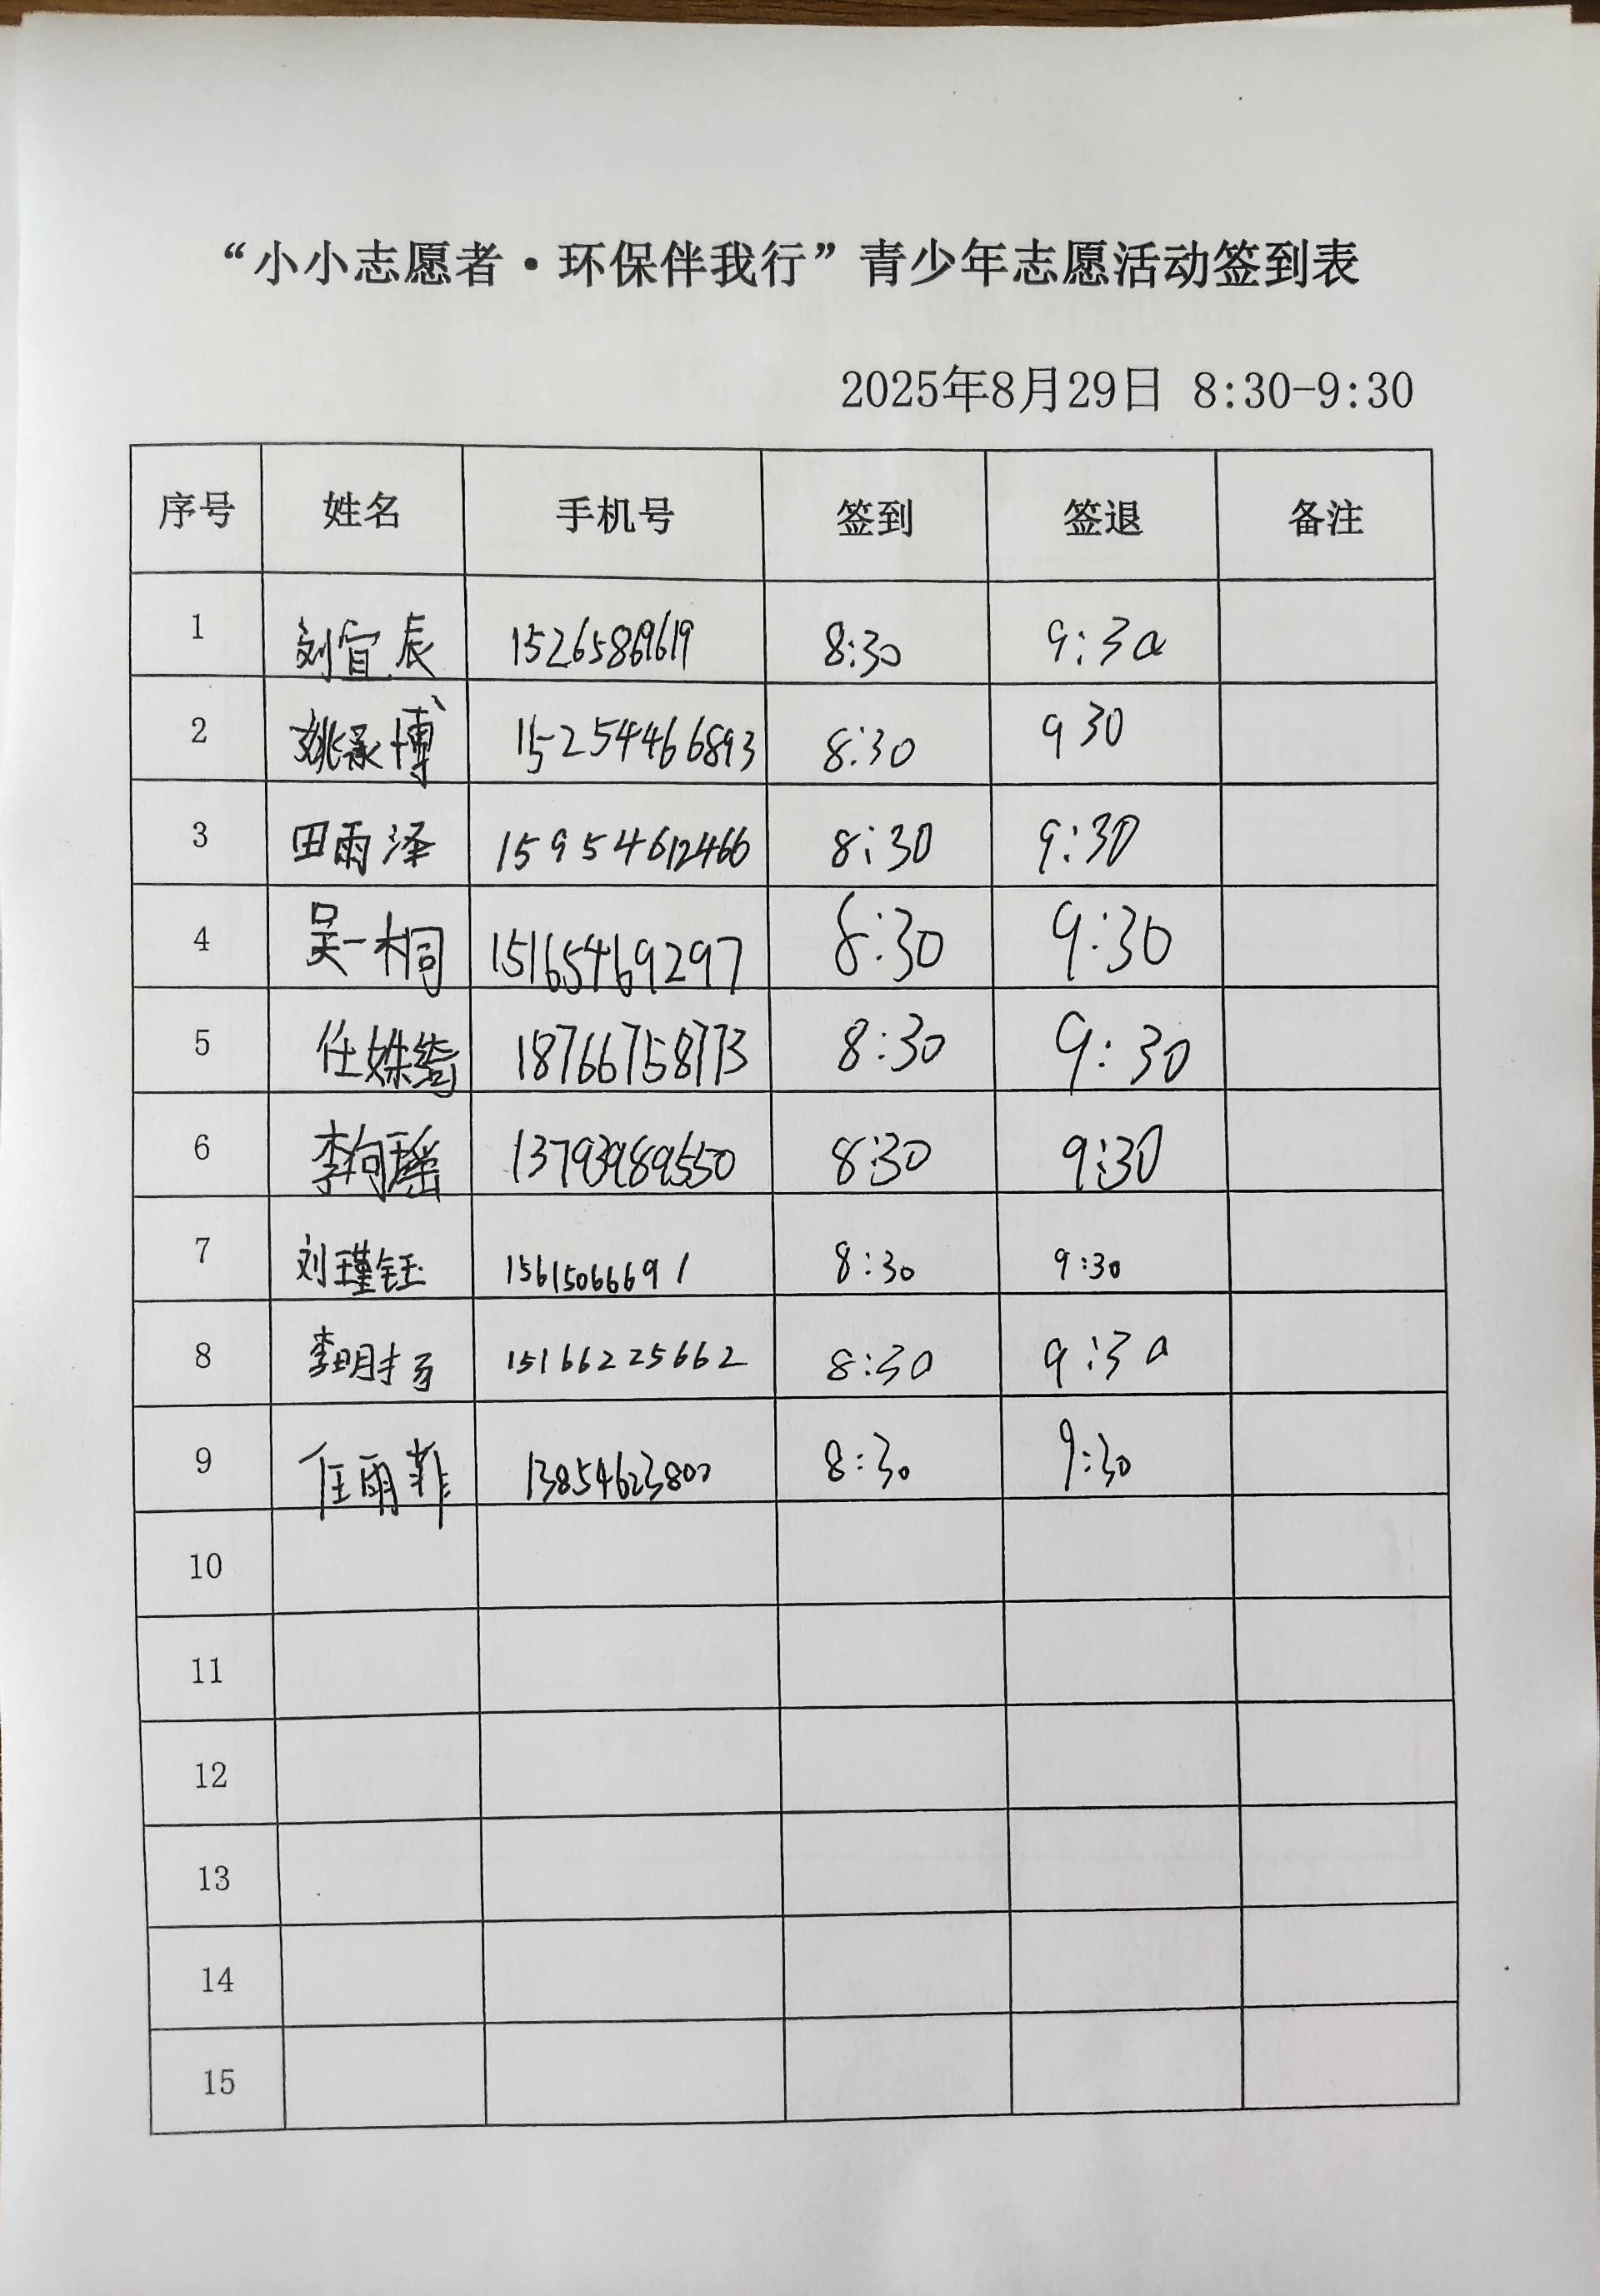 “小小志愿者·环保伴我行”青少年志愿活动签到表
2025年8月29日 8:30-9:30
序号 姓名 手机号 签到 签退 备注
1 刘宜辰 15265869619 8:30 9:30
2 姚承博 15254466893 8:30 9 30
3 田雨泽 15954612466 8:30 9:30
4 吴一桐 15165469297 8:30 9:30
5 任姝 18766758773 8:30 9:30
6 李向瑶 13793989550 8:30 9:30
7 刘瑾钰 15615066691 8:30 9:30
8 李明扬 15166225662 8:30 9:30
9 任雨菲 13854623800 8:30 9:30
10
11
12
13
14
15